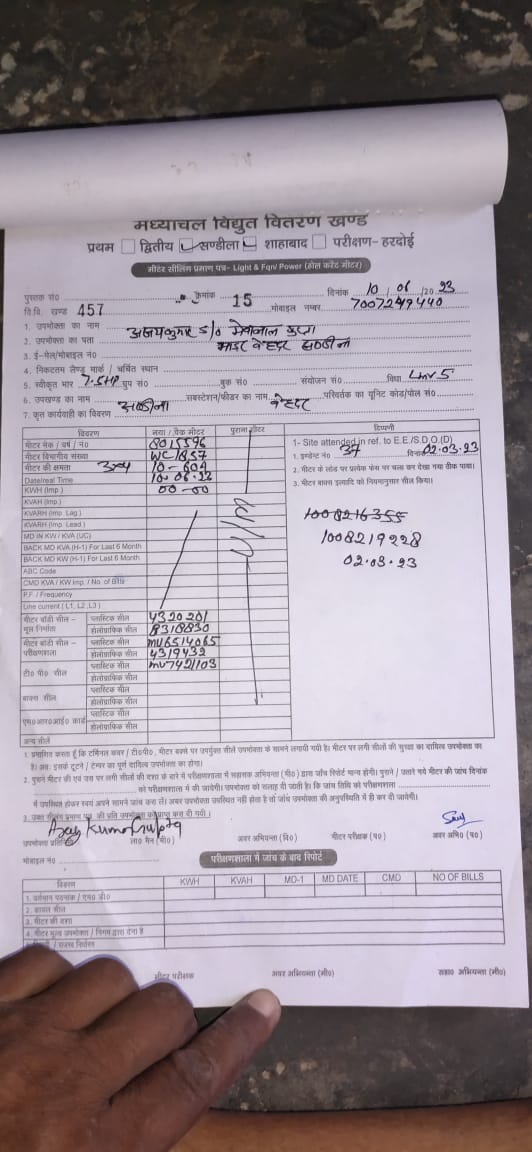 मध्याचल विद्युत वितरण खण्ड
प्रथम द्वितीय सण्डीला शाहाबाद परीक्षण- हरदोई
मीटर सीलिंग प्रमाण पत्र- Light & Fan/ Power (होल करेंट मीटर)
पुस्तक सं० क्रमांक 15 दिनांक 10 / 06 /20 23
वि. वि. खण्ड 457 मोबाइल नम्बर 7007249440
1. उपभोक्ता का नाम अजयकुमार S/o
2. उपभोक्ता का पता
3. ई-मेल/मोबाइल नं०
4. निकटतम लैण्ड मार्क / चर्चित स्थान
5. स्वीकृत भार 7.5HP ग्रुप सं० बुक सं० संयोजन सं० विधा LMV5
6. उपखण्ड का नाम सबस्टेशन/फीडर का नाम परिवर्तक का यूनिट कोड/पोल सं०
7. कृत कार्यवाही का विवरण
विवरण नया / चेक मीटर पुराना मीटर टिप्पणी
मीटर मेक / वर्ष / नं० 8015596
मीटर विभागीय संख्या WC1857
मीटर की क्षमता 10-60A
Date/real Time 10.06.23
KWH (Imp.) 00-00
KVAH (Imp.)
KVARH (Imp. Lag.)
KVARH (Imp. Lead.)
MD IN KW / KVA (UC)
BACK MD KVA (H-1) For Last 6 Month
BACK MD KW (H-1) For Last 6 Month
ABC Code
CMD KVA / KW Imp. / No. of Bills
P.F. / Frequency
Line current ( L1, L2 ,L3 )
1- Site attended in ref. to E.E./S.D.O.(D)
1. इण्डेन्ट नं० 37 दिनांक 02.03.23
2. मीटर के लोड पर प्रत्येक फेस पर चला कर देखा गया ठीक पाया।
3. मीटर बाक्स इत्यादि को नियमानुसार सील किया।
1008216355
1008219228
02.03.23
मीटर बॉडी सील – मूल निर्माता प्लास्टिक सील 4320201
होलोग्राफिक सील 8318830
मीटर बॉडी सील – परीक्षणशाला प्लास्टिक सील MU6514065
होलोग्राफिक सील 4319432
टी० पी० सील प्लास्टिक सील MU7421103
होलोग्राफिक सील
बाक्स सील प्लास्टिक सील
होलोग्राफिक सील
एम०आर०आई० कार्ड प्लास्टिक सील
होलोग्राफिक सील
अन्य सीलें
1. प्रमाणित करता हूँ कि टर्मिनल कवर / टी०पी०, मीटर बक्से पर उपर्युक्त सीलें उपभोक्ता के सामने लगायी गयी है। मीटर पर लगी सीलों की सुरक्षा का दायित्व उपभोक्ता का
है। अतः इसके टूटने / टेम्पर का पूर्ण दायित्व उपभोक्ता का होगा।
2. पुराने मीटर की एवं उस पर लगी सीलों की दशा के बारे में परीक्षणशाला में सहायक अभियन्ता (मी०) द्वारा जाँच रिपोर्ट मान्य होगी। पुराने / उतारे गये मीटर की जांच दिनांक
को परीक्षणशाला में की जायेगी। उपभोक्ता को सलाह दी जाती है कि जांच तिथि को परीक्षणशाला
में उपस्थित होकर स्वयं अपने सामने जांच करा लें। अगर उपभोक्ता उपस्थित नहीं होता है तो जांच उपभोक्ता की अनुपस्थिति में ही कर दी जायेगी।
3. उक्त सीलिंग प्रमाण पत्र की प्रति उपभोक्ता को प्राप्त करा दी गयी।
Ajay Kumar Gupta
उपभोक्ता प्रतिनिधि ला० मैन (मी०) अवर अभियन्ता (वि०) मीटर परीक्षक (प०) अवर अभि० (प०)
मोबाइल नं०
परीक्षणशाला में जांच के बाद रिपोर्ट
विवरण KWH KVAH MD-1 MD DATE CMD NO OF BILLS
1. वर्तमान पठनांक / एम० डी०
2. बाक्स सील
3. मीटर की दशा
4. मीटर मूल्य उपभोक्ता / निगम द्वारा देना है
मीटर परीक्षक अवर अभियन्ता (मी०) सहा० अभियन्ता (मी०)